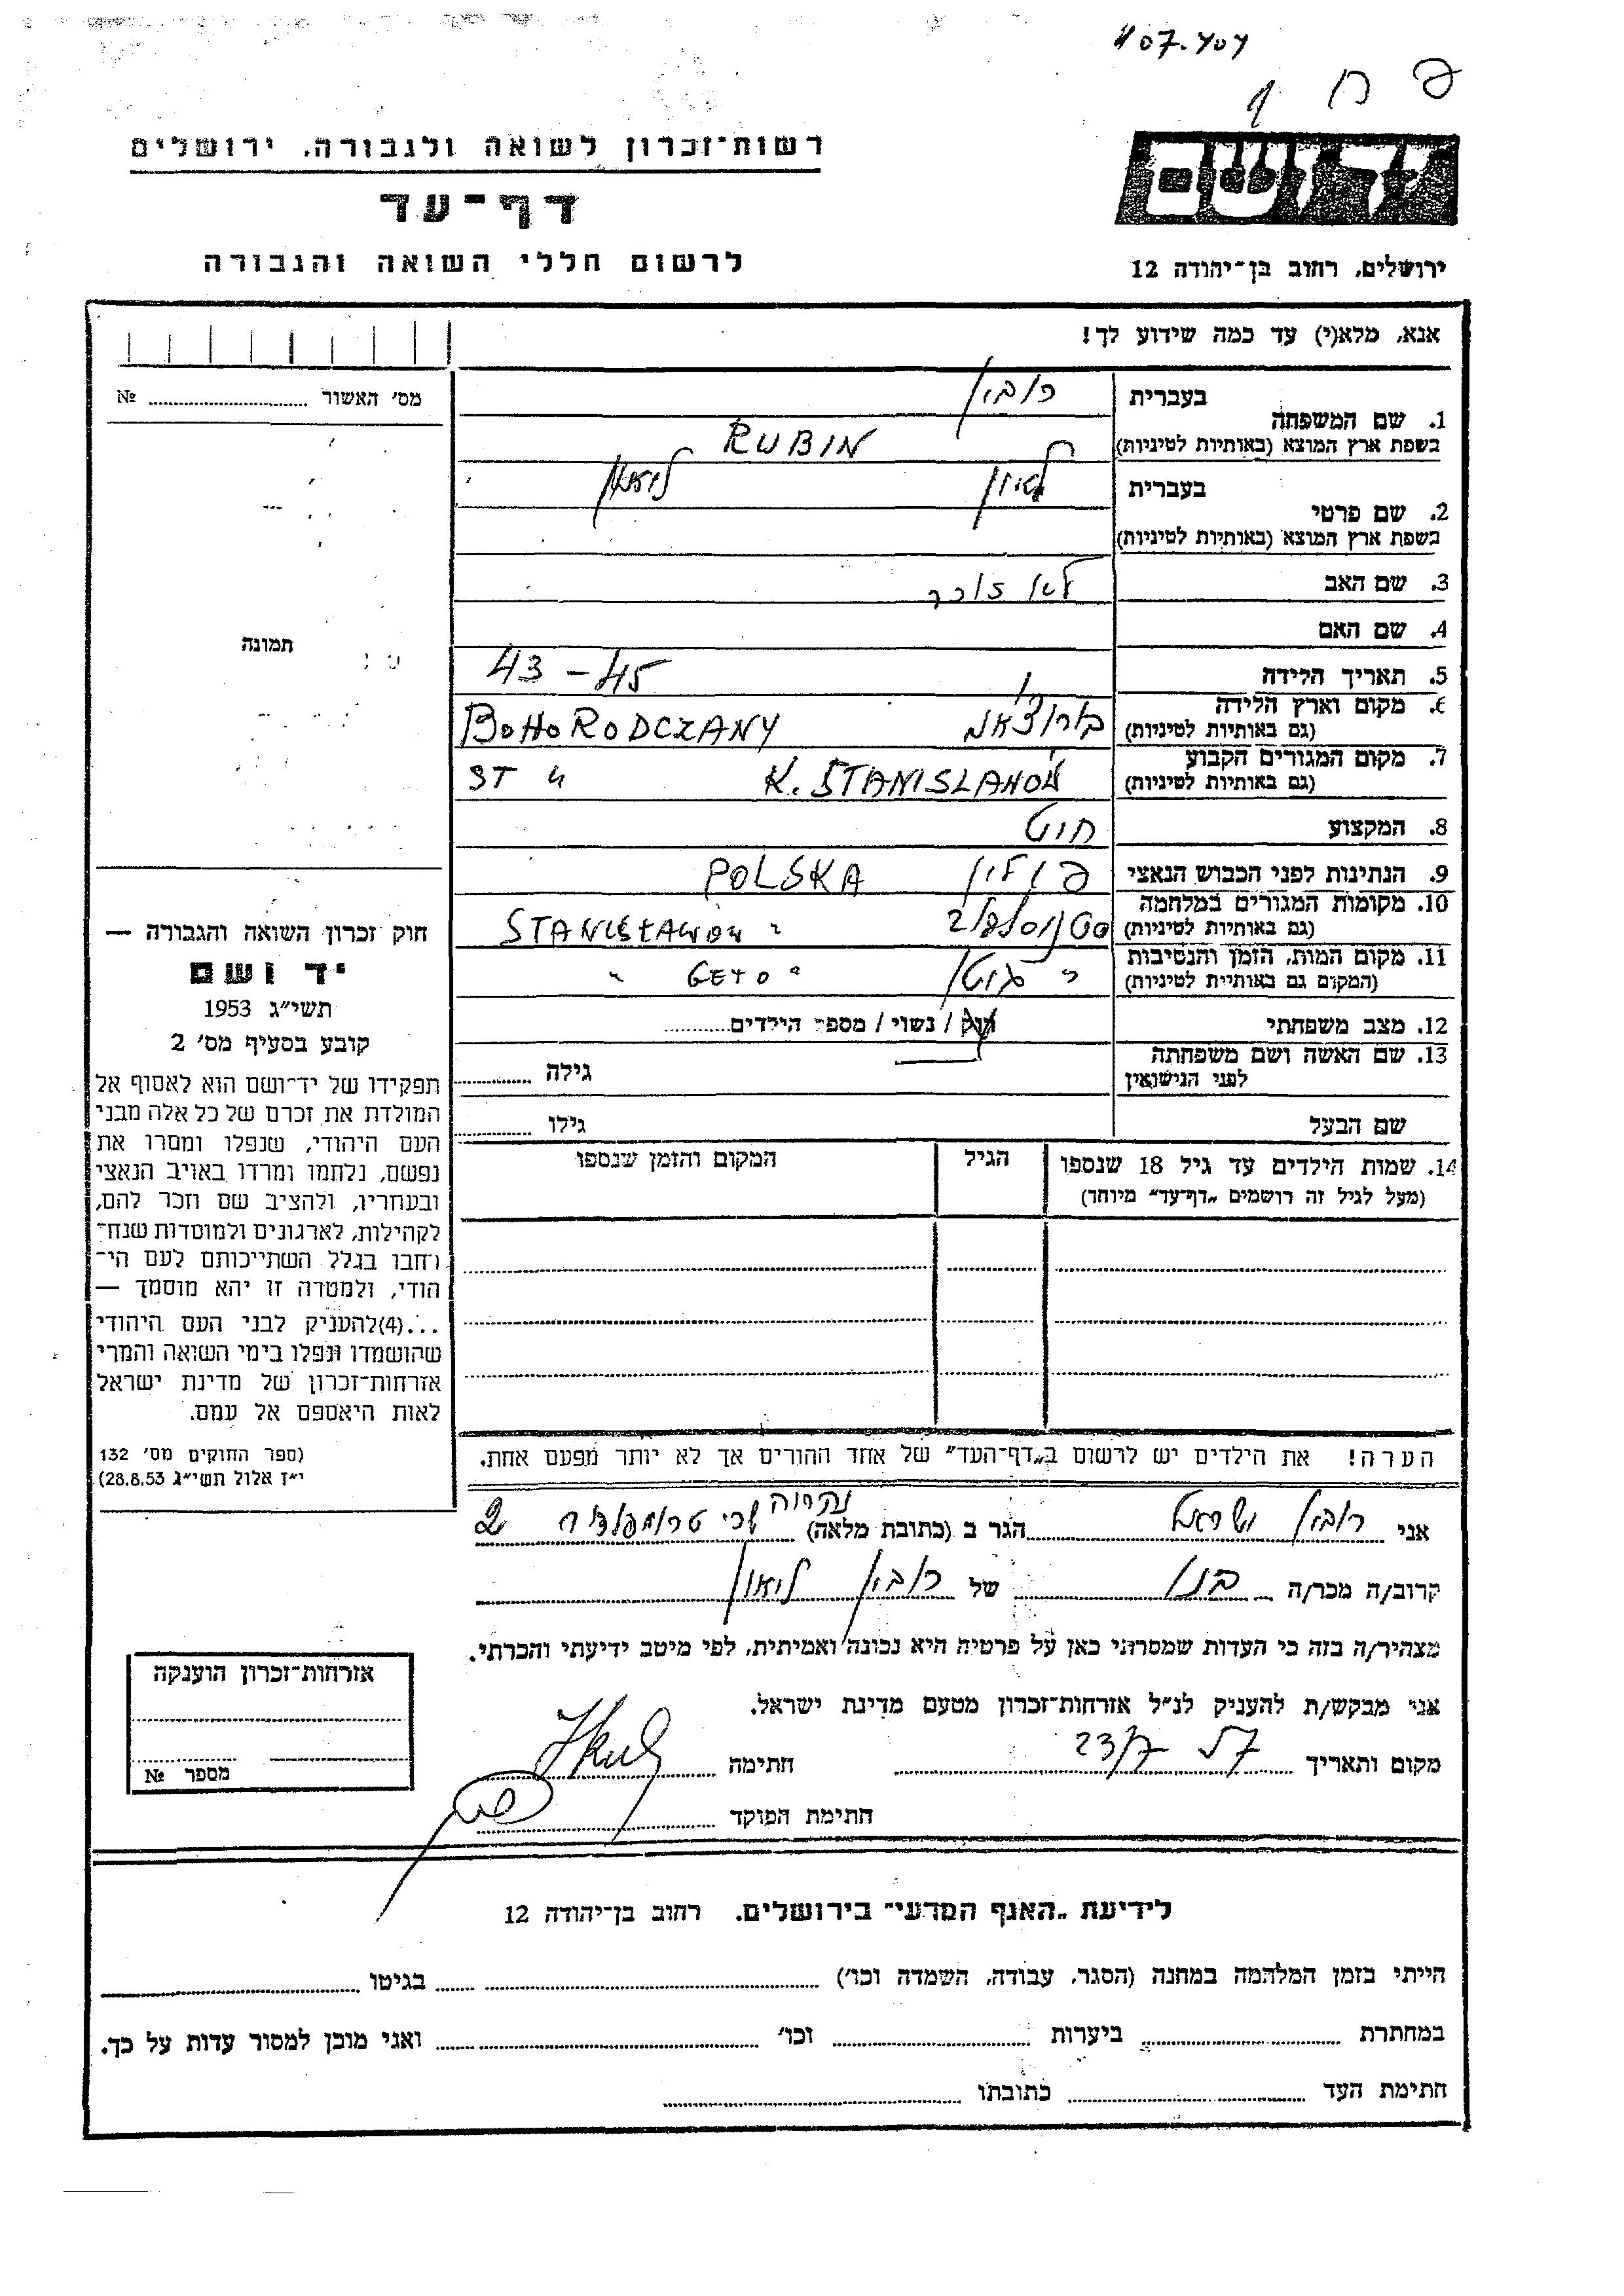 רשות־זכרון לשואה ולגבורה. ירושלים
דף־עד
לרשום חללי השואה והגבורה
יד ושם
ירושלים, רחוב בן־יהודה 12
אנא, מלא(י) עד כמה שידוע לך!
מס׳ האשור № 
1. שם המשפחה
בעברית רובין
בשפת ארץ המוצא (באותיות לטיניות) RUBIN
2. שם פרטי
בעברית ליאון
בשפת ארץ המוצא (באותיות לטיניות)
3. שם האב
4. שם האם
תמונה
5. תאריך הלידה 43 - 45
6. מקום וארץ הלידה
(גם באותיות לטיניות) BOHORODCZANY
7. מקום המגורים הקבוע
(גם באותיות לטיניות) K. STANISLAHOW ST
8. המקצוע
9. הנתינות לפני הכבוש הנאצי פולין POLSKA
10. מקומות המגורים במלחמה
(גם באותיות לטיניות) STANISŁAWOW "
11. מקום המות, הזמן והנסיבות
(המקום גם באותיית לטיניות) " גיטו " GETO "
12. מצב משפחתי רווק / נשוי / מספר הילדים
13. שם האשה ושם משפחתה
לפני הנישואין גילה
שם הבעל גילו
14. שמות הילדים עד גיל 18 שנספו הגיל המקום והזמן שנספו
(מעל לגיל זה רושמים „דף־עד״ מיוחד)
הערה! את הילדים יש לרשום ב„דף־העד״ של אחד ההורים אך לא יותר מפעם אחת.
חוק זכרון השואה והגבורה —
יד ושם
תשי״ג 1953
קובע בסעיף מס׳ 2
תפקידו של יד־ושם הוא לאסוף אל
המולדת את זכרם של כל אלה מבני
העם היהודי, שנפלו ומסרו את
נפשם, נלחמו ומרדו באויב הנאצי
ובעוזריו, ולהציב שם וזכר להם,
לקהילות, לארגונים ולמוסדות שנח־
רחבו בגלל השתייכותם לעם הי־
הודי, ולמטרה זו יהא מוסמך —
...(4)להעניק לבני העם היהודי
שהושמדו ונפלו בימי השואה והמרי
אזרחות־זכרון של מדינת ישראל
לאות היאספם אל עמם.
(ספר החוקים מס׳ 132
י״ז אלול תשי״ג 28.8.53)
אני רובין ישראל הגר ב (כתובת מלאה) נהריה טרומפלדור 2
קרוב/ה מכר/ה בנו של רובין ליאון
מצהיר/ה בזה כי העדות שמסרתי כאן על פרטיה היא נכונה ואמיתית, לפי מיטב ידיעתי והכרתי.
אני מבקש/ת להעניק לנ״ל אזרחות־זכרון מטעם מדינת ישראל.
מקום ותאריך 23/7 חתימה
חתימת הפוקד
אזרחות־זכרון הוענקה
מספר №
לידיעת „האגף המדעי״ בירושלים. רחוב בן־יהודה 12
הייתי בזמן המלהמה במחנה (הסגר, עבודה, השמדה וכו׳) בגיטו
במחתרת ביערות וכו׳ ואני מוכן למסור עדות על כך.
חתימת העד כתובתו